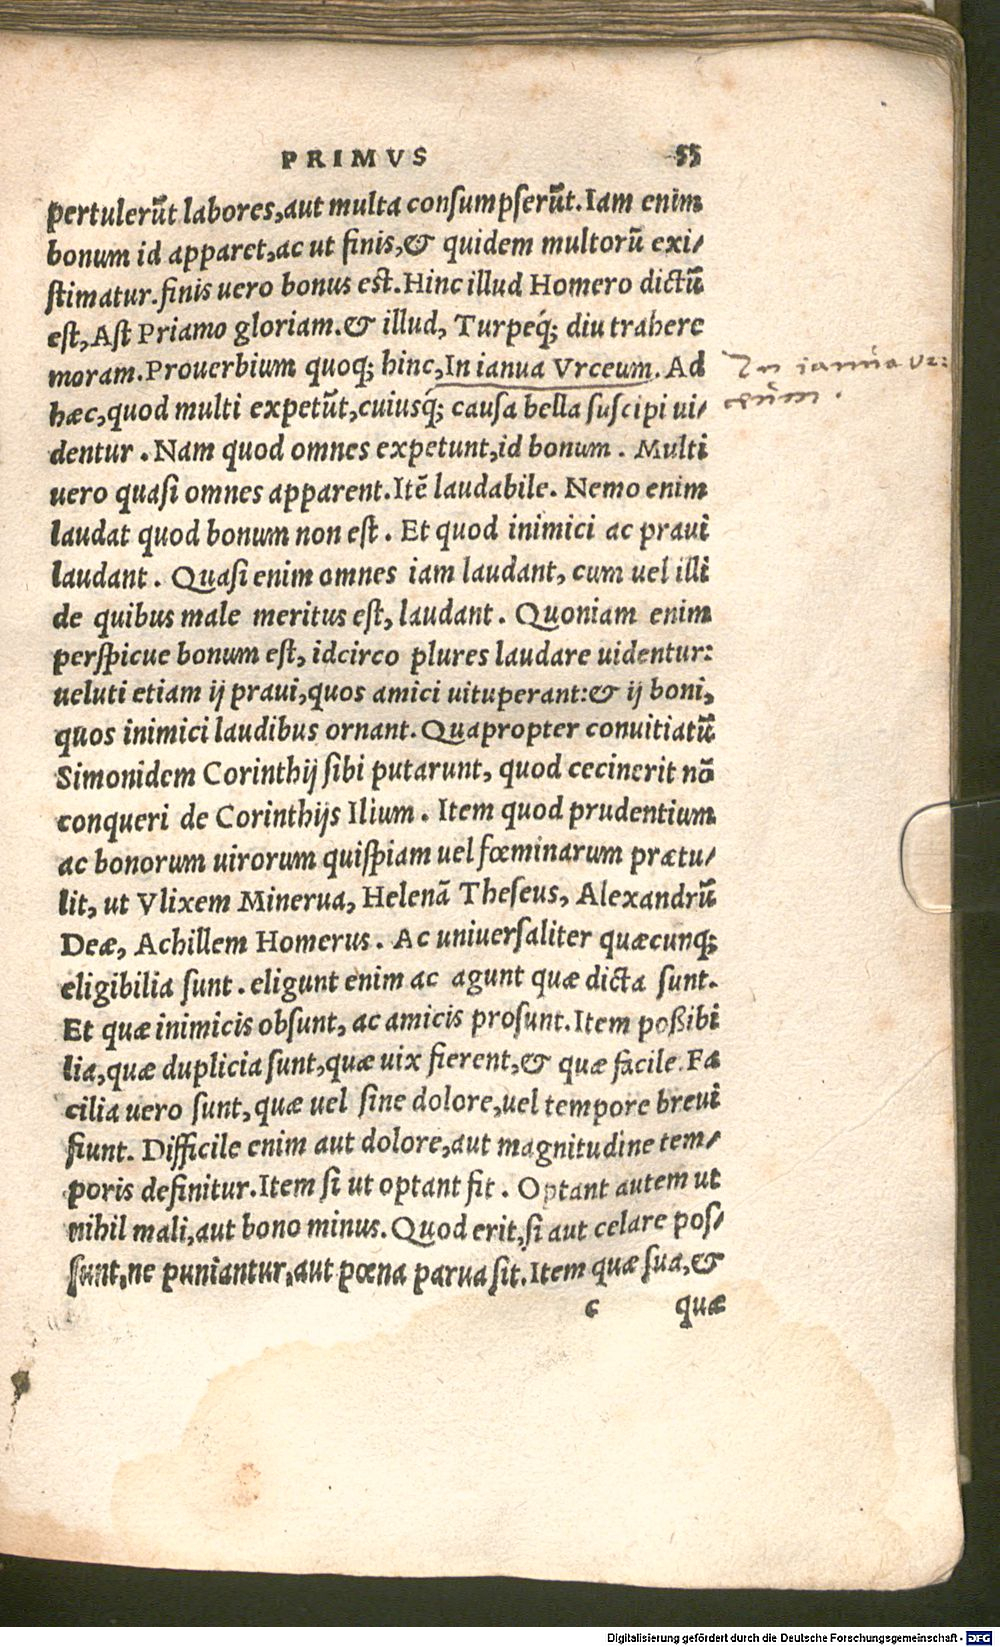 PRIMVS 55
pertulerũt labores, aut multa consumpserũt. Iam enim
bonum id apparet, ac ut finis, & quidem multorũ exi/
stimatur. finis uero bonus est. Hinc illud Homero dictũ
est, Ast Priamo gloriam. & illud, Turpeq́; diu trahere
moram. Prouerbium quoq; hinc, In ianua Vrceum. Ad
In ianua vr:
hæc, quod multi expetũt, cuiusq́; causa bella suscipi ui/
ceũm.
dentur. Nam quod omnes expetunt, id bonum. Multi
uero quasi omnes apparent. Itẽ laudabile. Nemo enim
laudat quod bonum non est. Et quod inimici ac praui
laudant. Quasi enim omnes iam laudant, cum uel illi
de quibus male meritus est, laudant. Quoniam enim
perspicue bonum est, idcirco plures laudare uidentur:
ueluti etiam ij praui, quos amici uituperant: & ij boni,
quos inimici laudibus ornant. Quapropter conuitiatũ
Simonidem Corinthij sibi putarunt, quod cecinerit nõ
conqueri de Corinthijs Ilium. Item quod prudentium
ac bonorum uirorum quispiam uel fœminarum prætu/
lit, ut Vlixem Minerua, Helenã Theseus, Alexandrũ
Deæ, Achillem Homerus. Ac uniuersaliter quæcunq;
eligibilia sunt. eligunt enim ac agunt quæ dicta sunt.
Et quæ inimicis obsunt, ac amicis prosunt. Item poßibi
lia, quæ duplicia sunt, quæ uix fierent, & quæ facile. Fa
cilia uero sunt, quæ uel sine dolore, uel tempore breui
fiunt. Difficile enim aut dolore, aut magnitudine tem/
poris definitur. Item si ut optant fit. Optant autem ut
nihil mali, aut bono minus. Quod erit, si aut celare pos/
sunt, ne puniantur, aut pœna parua sit. Item quæ sua, &
c quæ
Digitalisierung gefördert durch die Deutsche Forschungsgemeinschaft - DFG